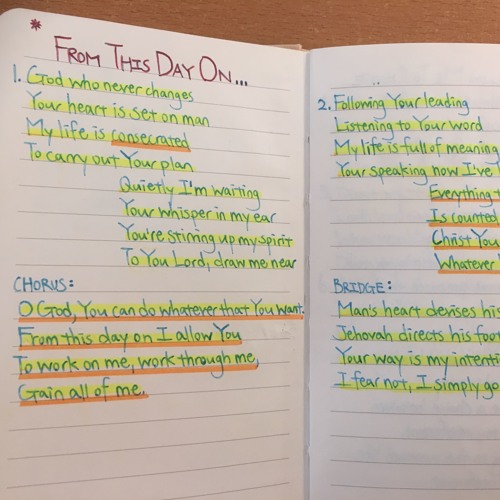 * FROM THIS DAY ON...
1. God who never changes
Your heart is set on man
My life is consecrated
To carry out Your plan
Quietly I'm waiting
Your whisper in my ear
You're stirring up my spirit
To You Lord, draw me near
CHORUS:
O God, You can do whatever that You want.
From this day on I allow You
To work on me, work through me,
Gain all of me.
2. Following Your leading
Listening to Your word
My life is full of meaning
Your speaking how I've
Everything
Is counted
Christ You
Whatever
BRIDGE:
Man's heart devises his
Jehovah directs his
Your way is my
I fear not, I simply go